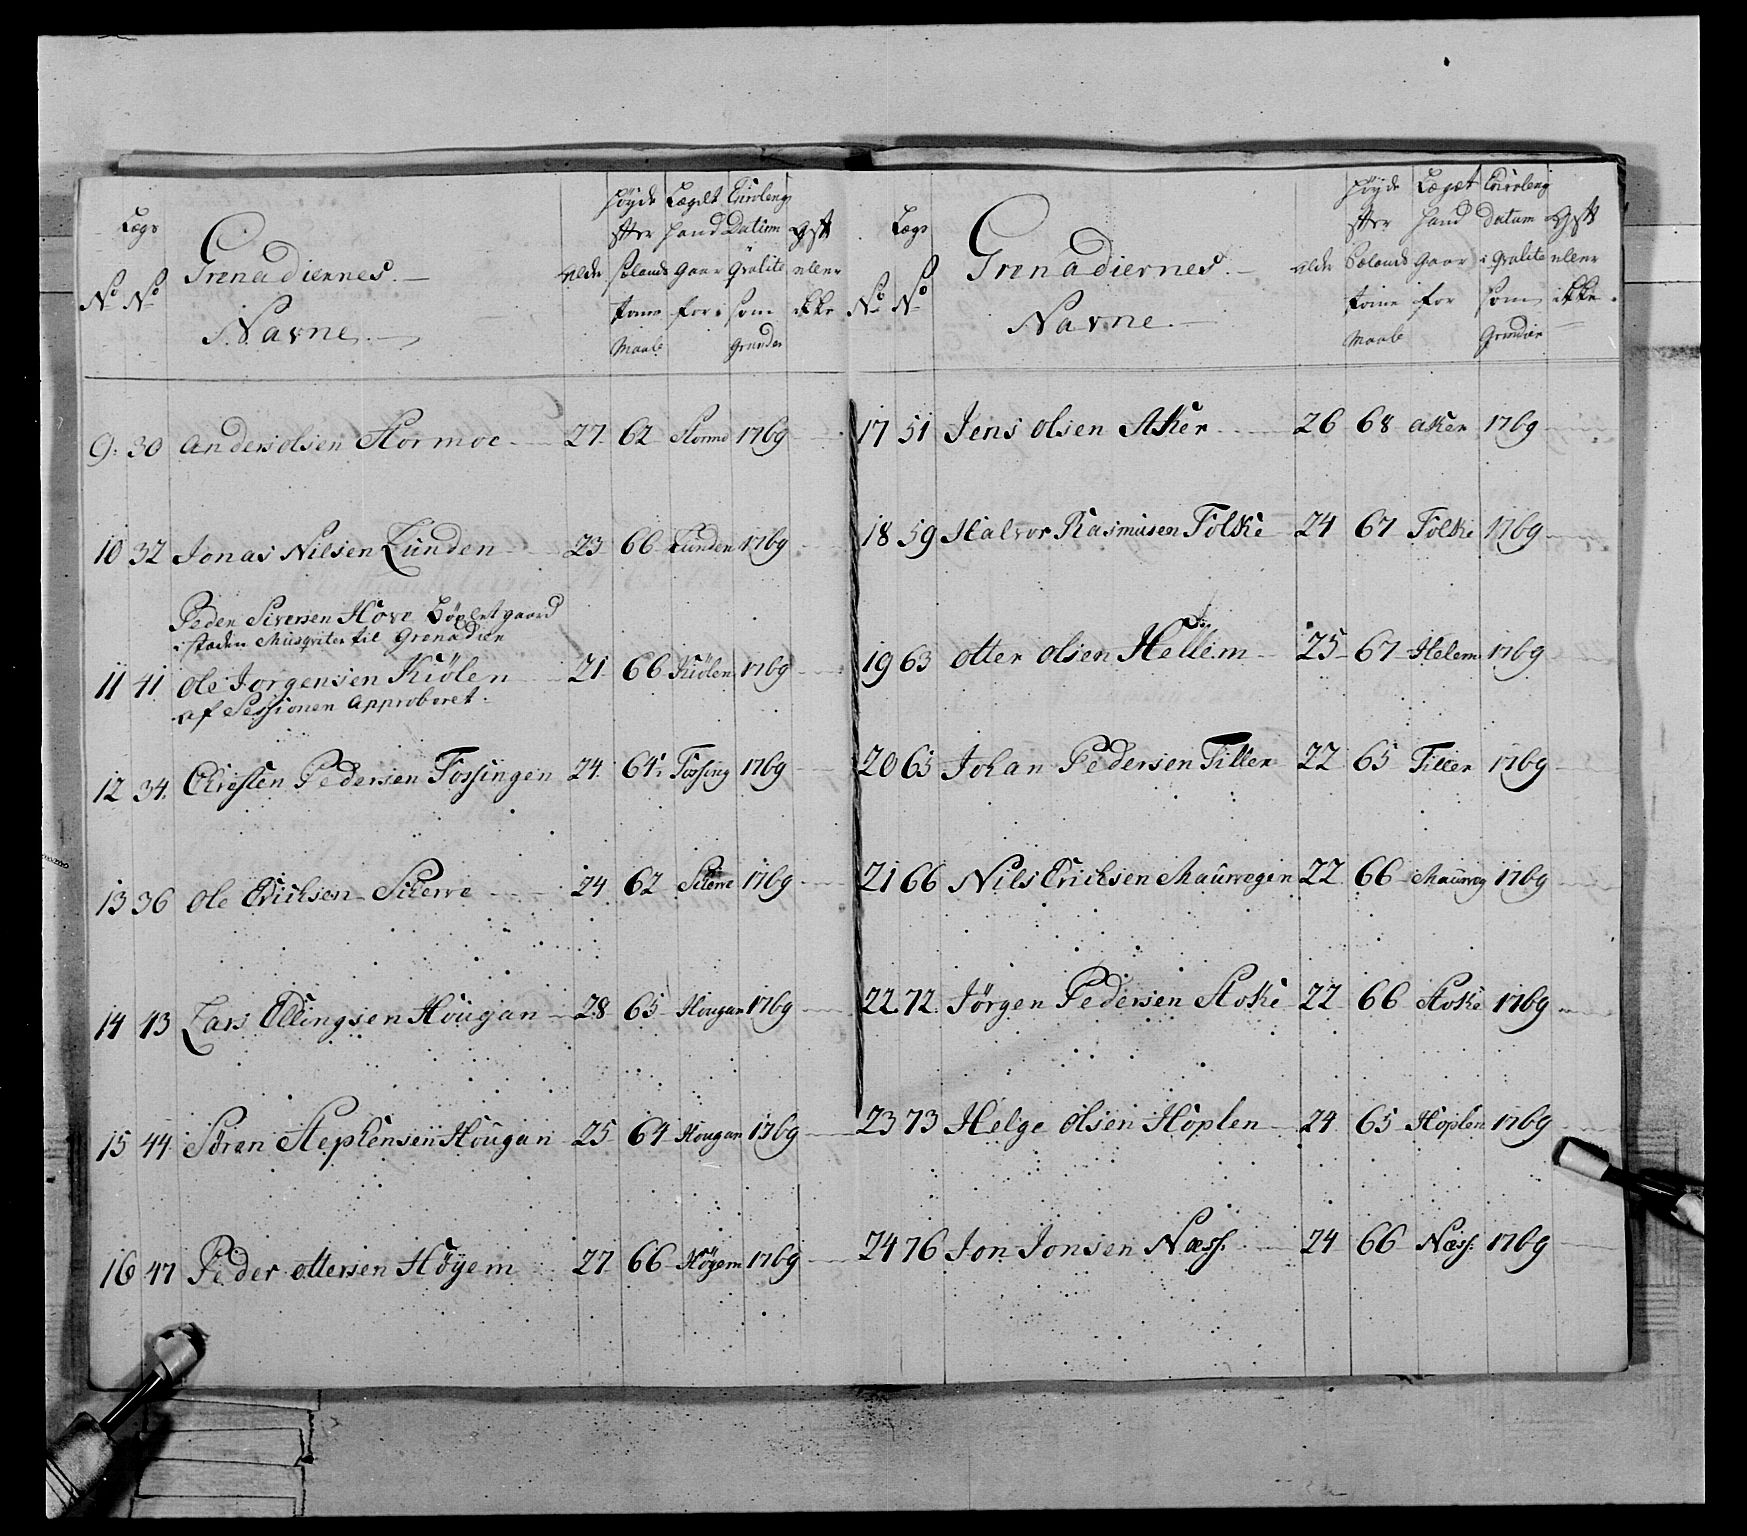 Lægs
No No
Grenadiernes
Navne
Alder
Høyde efter Sælands tome Maale
Lægdt hand Gaar for
Enrolerng Datum i Qvalite som Grenader
Gift eller ikke
9 30 Anders olsen Stormoe 27 62 Stormo 1769
10 32 Jonas Nilsen Lunden 23 66 Lunden 1769
Peder Siversen Hove
i steden Musqviter til Grenadier
11 41 Ole Jorgensen Kiölen 21 66 Kiölen 1769
af Sessionen Approberet
12 34 Christen Pedersen Fossingen 24 64 Fossing 1769
13 36 Ole Erichsen Scherve 24 62 1769
14 43 Lars Ellingsen Hougan 28 65 Hougan 1769
15 44 Sören Stephensen Hougan 25 64 Hougan 1769
16 47 Peder ottersen Höyem 27 66 Höyem 1769
Lægs
No No
Grenadiernes
Navne
Alder
Høyde efter Sælands tome Maale
Læget hand Gaar for
Enroleng datum i Qvalite som Grendier
Gift eller ikke
17 51 Jens olsen Aker 26 68 aker 1769
18 59 Halvor Rasmusen Folke 24 67 Folke 1769
19 63 otter olsen Hellem 25 67 Helem 1769
20 65 Johan Pedersen Tiller 22 65 Tiller 1769
21 66 Nils Erichsen Maurvegin 22 66 Maurveg 1769
22 72 Jörgen Pedersen Stoke 22 66 Stoke 1769
23 73 Helge olsen Hoplen 24 65 Hoplen 1769
24 76 Jon Jonsen Næss 24 66 Næss 1769